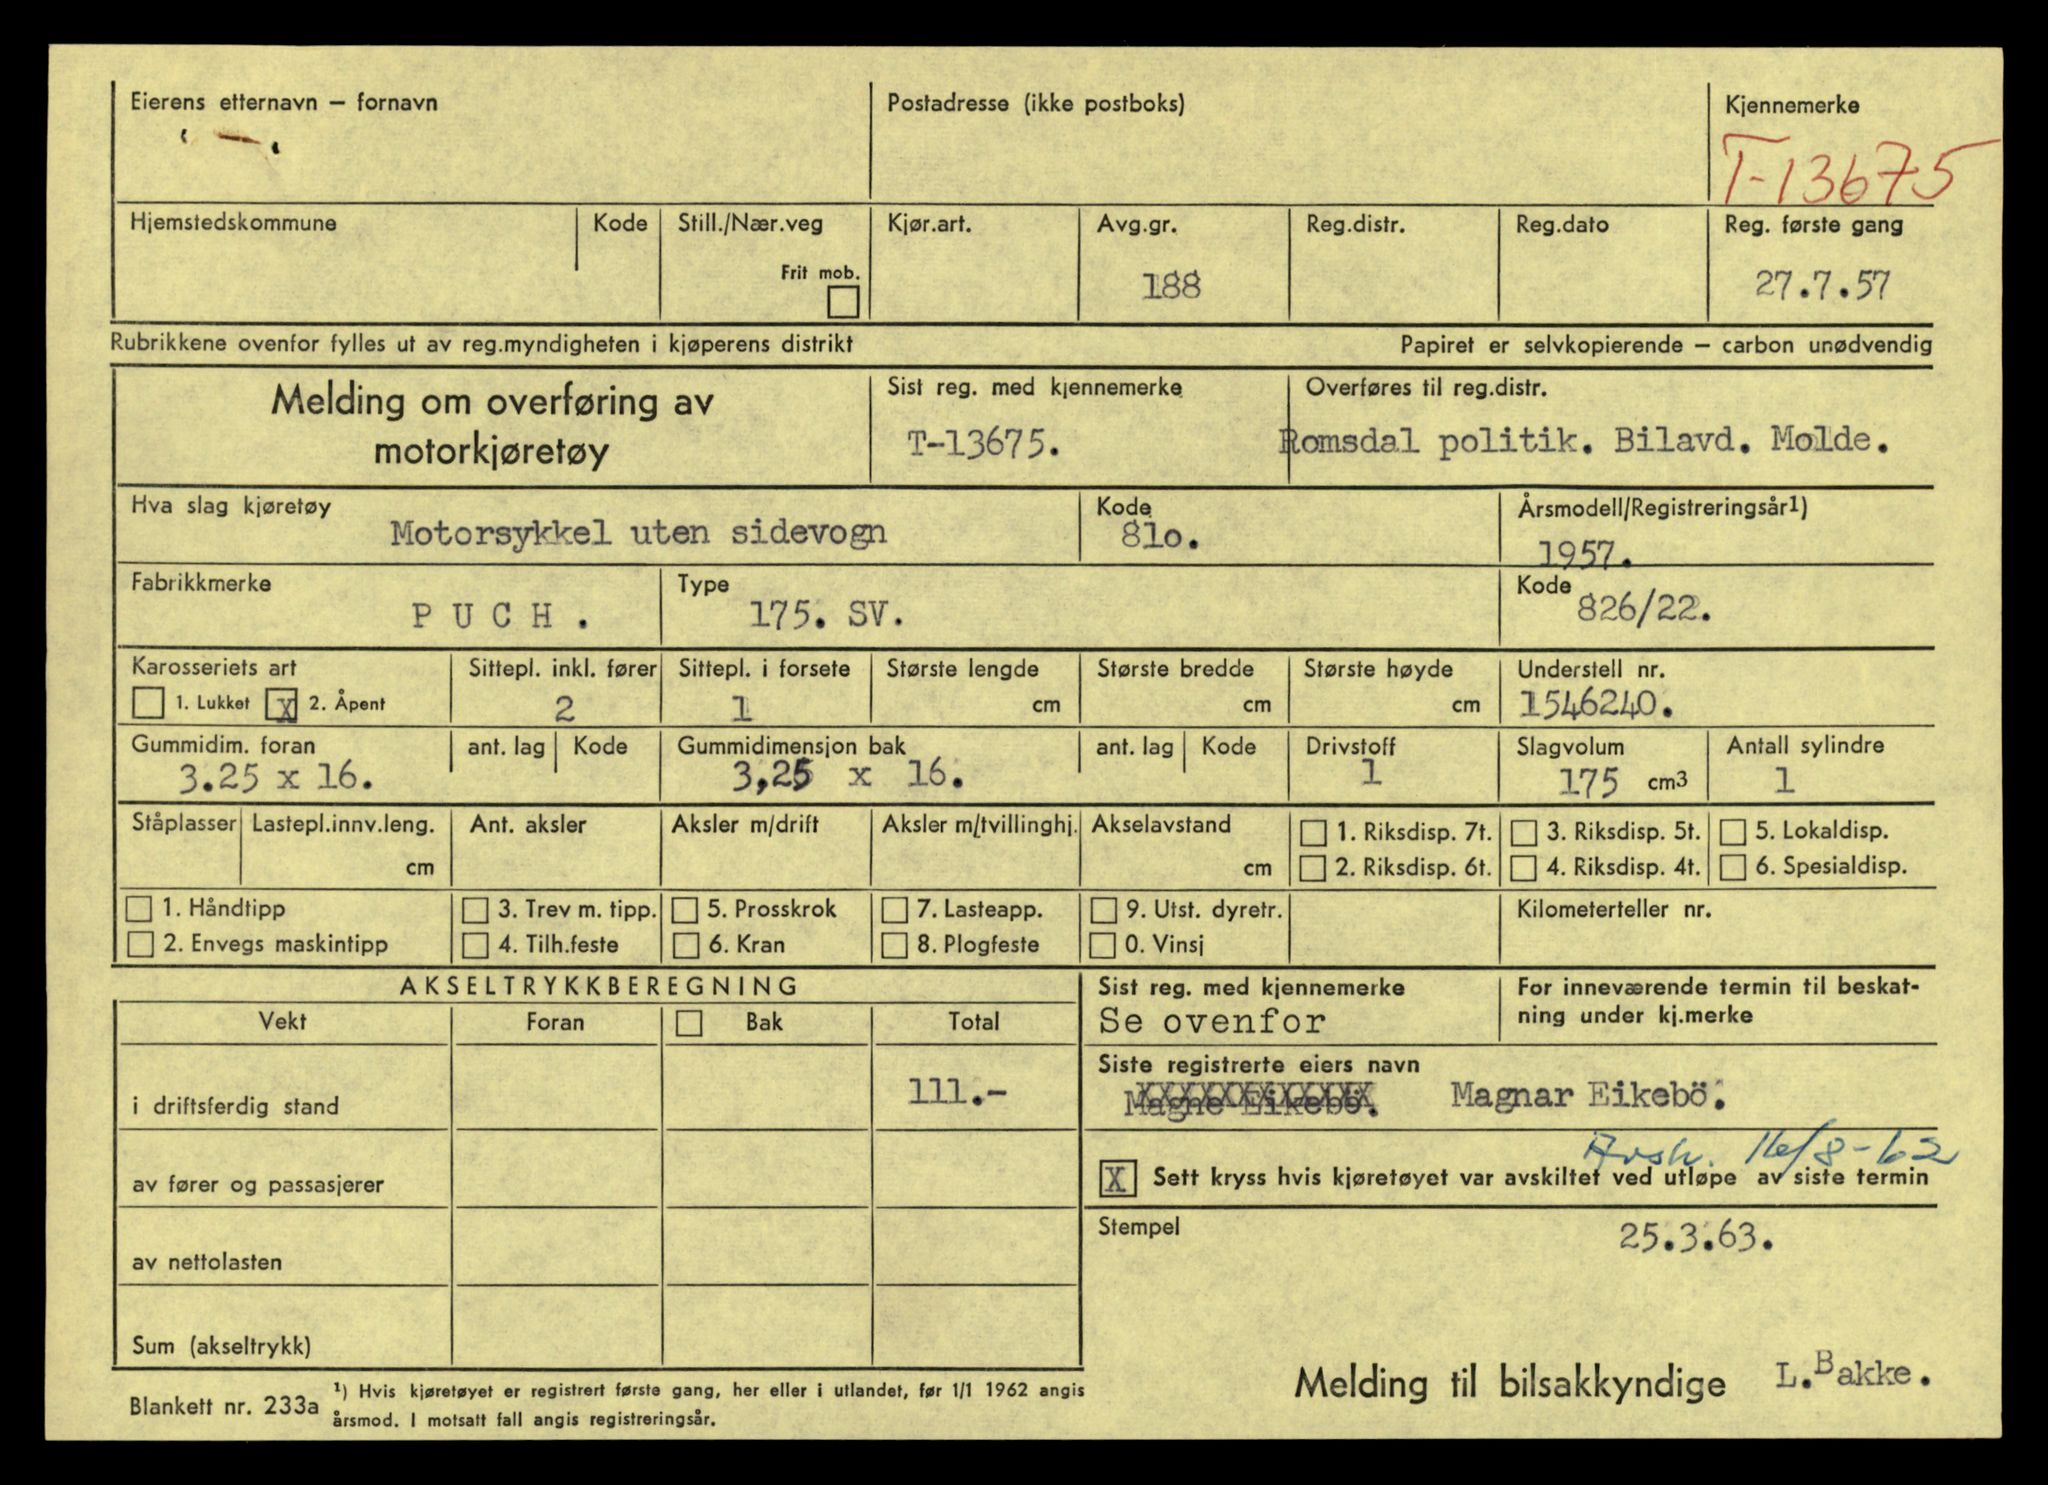 Eierens etternavn – fornavn
Postadresse (ikke postboks)
Kjennemerke
T-13675
Hjemstedskommune
Kode
Still./Nær.veg
Frit mob.
Kjør.art.
Avg.gr.
188
Reg.distr.
Reg.dato
Reg. første gang
27.7.57
Rubrikkene ovenfor fylles ut av reg.myndigheten i kjøperens distrikt
Papiret er selvkopierende – carbon unødvendig
Melding om overføring av
motorkjøretøy
Sist reg. med kjennemerke
T-13675.
Overføres til reg.distr.
Romsdal politik. Bilavd. Molde.
Hva slag kjøretøy
Motorsykkel uten sidevogn
Kode
81o.
Årsmodell/Registreringsår1)
1957.
Fabrikkmerke
P U C H .
Type
175. SV.
Kode
826/22.
Karosseriets art
1. Lukket X 2. Åpent
Sittepl. inkl. fører
2
Sittepl. i forsete
1
Største lengde
cm
Største bredde
cm
Største høyde
cm
Understell nr.
1546240.
Gummidim. foran
3.25 x 16.
ant. lag
Kode
Gummidimensjon bak
3,25 x 16.
ant. lag
Kode
Drivstoff
1
Slagvolum
175 cm3
Antall sylindre
1
Ståplasser
Lastepl.innv.leng.
cm
Ant. aksler
Aksler m/drift
Aksler m/tvillinghj.
Akselavstand
cm
1. Riksdisp. 7t.
2. Riksdisp. 6t.
3. Riksdisp. 5t.
4. Riksdisp. 4t.
5. Lokaldisp.
6. Spesialdisp.
1. Håndtipp
2. Envegs maskintipp
3. Trev m. tipp.
4. Tilh.feste
5. Prosskrok
6. Kran
7. Lasteapp.
8. Plogfeste
9. Utst. dyretr.
0. Vinsj
Kilometerteller nr.
AKSELTRYKKBEREGNING
Vekt
Foran
Bak
Total
i driftsferdig stand
111.-
av fører og passasjerer
av nettolasten
Sum (akseltrykk)
Sist reg. med kjennemerke
Se ovenfor
For inneværende termin til beskat-
ning under kj.merke
Siste registrerte eiers navn
Magne Eikebö. Magnar Eikebö.
Avsk. 16/8-62
X Sett kryss hvis kjøretøyet var avskiltet ved utløpe av siste termin
Stempel
25.3.63.
Blankett nr. 233a
1) Hvis kjøretøyet er registrert første gang, her eller i utlandet, før 1/1 1962 angis
årsmod. I motsatt fall angis registreringsår.
Melding til bilsakkyndige L.Bakke.